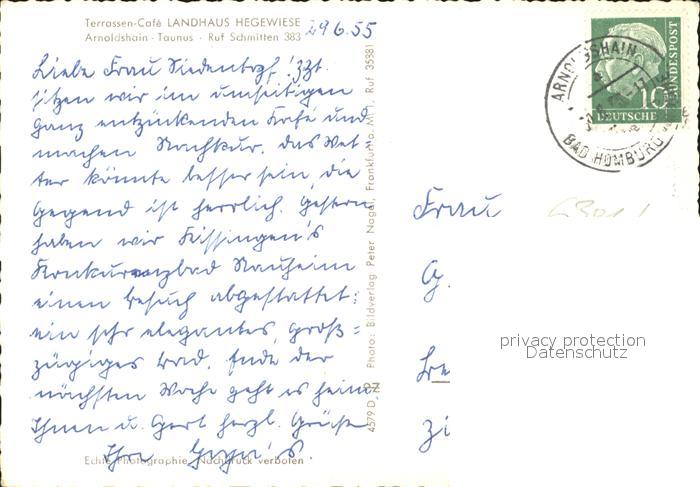 Terrassen-Café LANDHAUS HEGEWIESE
Arnoldshain - Taunus - Ruf Schmitten 383
29.6.55
Liebe Frau Siedentopf! Zzt.
sitzen wir im umseitigen
ganz entzückenden Kafé und
machen Nachkur. Das Wet-
ter könnte besser sein, die
Gegend ist herrlich. Gestern
haben wir Kissingen's
Konkurrenzbad Nauheim
einen Besuch abgestattet:
ein sehr elegantes, groß=
zügiges Bad. Ende der
nächsten Woche geht es heim.
Ihnen u. Gert herzl. Grüße
Ihre
Echte Photographie Nachdruck verboten
4579 D PZ Photo: Bildverlag Peter Nagel, Frankfurt a. M. 1, Ruf 35381
DEUTSCHE BUNDESPOST
10
ARNOLDSHAIN
BAD HOMBURG
Frau
G.
zi
privacy protection
Datenschutz